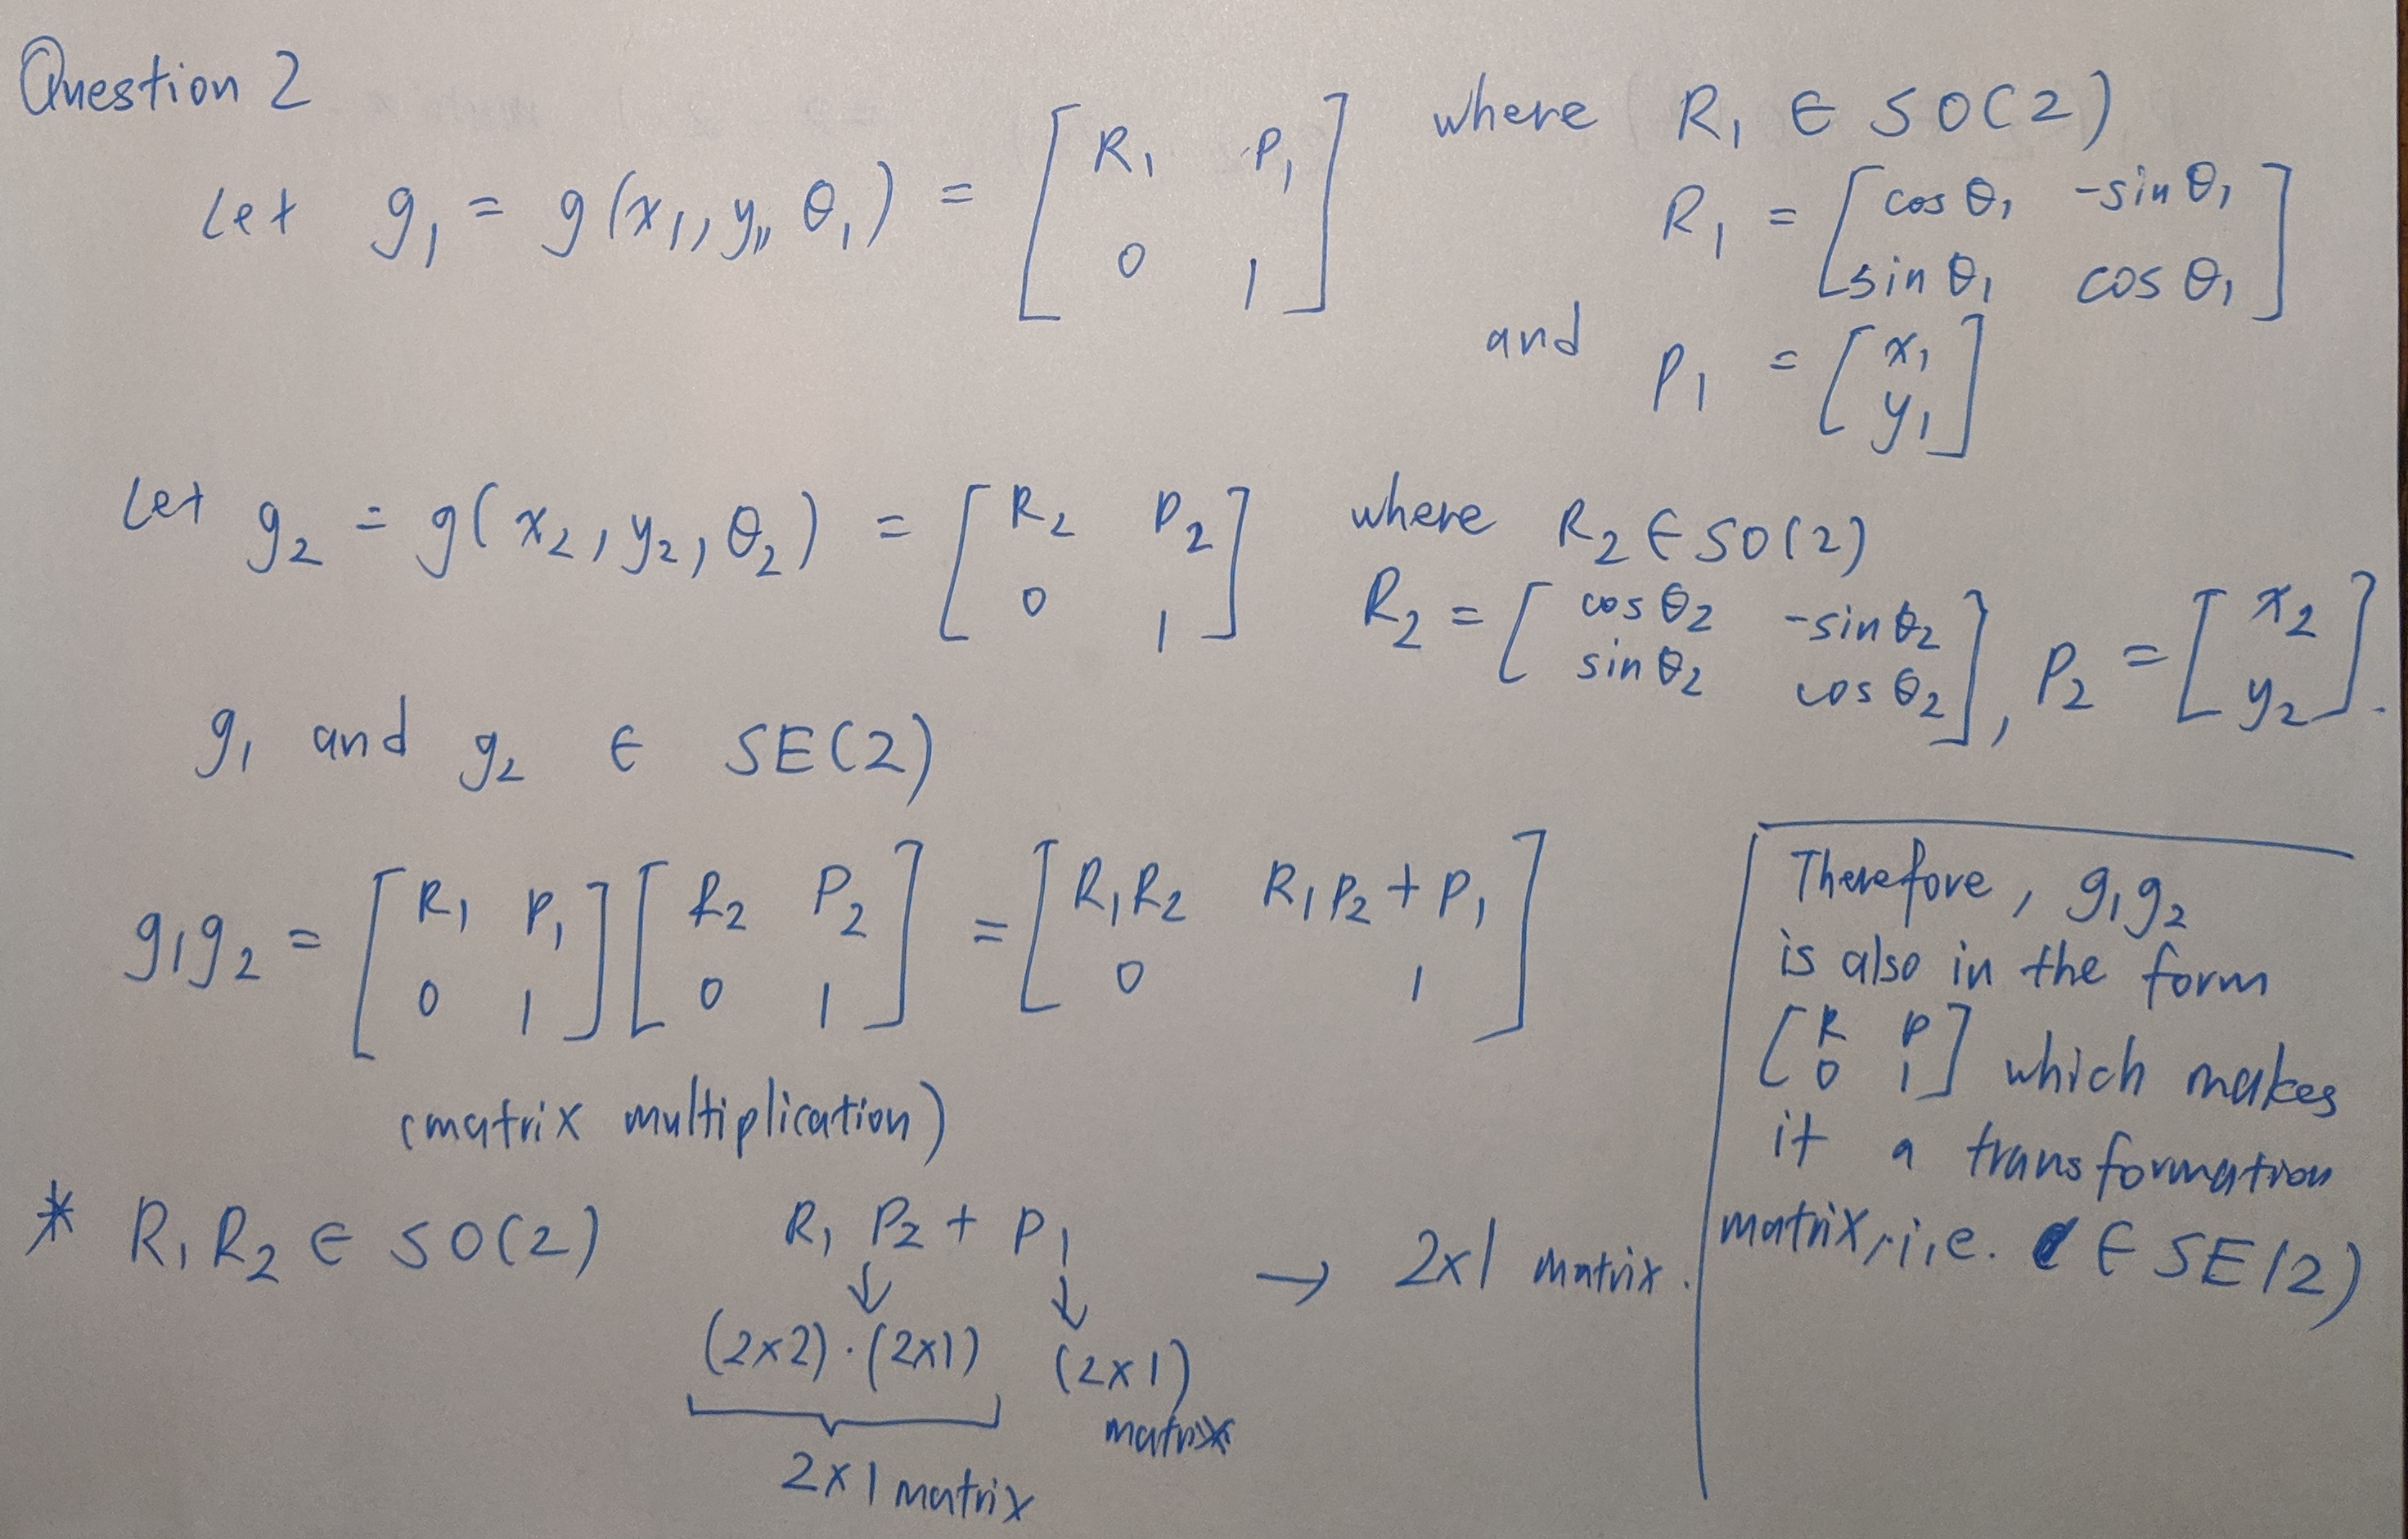 Question 2
Let g₁ = g(x₁, y₁, θ₁) = [R₁ P₁; 0 1] where R₁ ∈ SO(2)
R₁ = [cos θ₁ -sin θ₁; sin θ₁ cos θ₁]
and P₁ = [x₁; y₁]
Let g₂ = g(x₂, y₂, θ₂) = [R₂ P₂; 0 1] where R₂ ∈ SO(2)
R₂ = [cos θ₂ -sin θ₂; sin θ₂ cos θ₂], P₂ = [x₂; y₂].
g₁ and g₂ ∈ SE(2)
g₁g₂ = [R₁ P₁; 0 1] [R₂ P₂; 0 1] = [R₁R₂ R₁P₂ + P₁; 0 1]
(matrix multiplication)
* R₁R₂ ∈ SO(2) R₁ P₂ + P₁ → 2x1 matrix.
↓ ↓
(2x2)·(2x1) (2x1)
matrix
2x1 matrix
Therefore, g₁g₂
is also in the form
[R P; 0 1] which makes
it a transformation
matrix, i.e. ∈ SE(2)